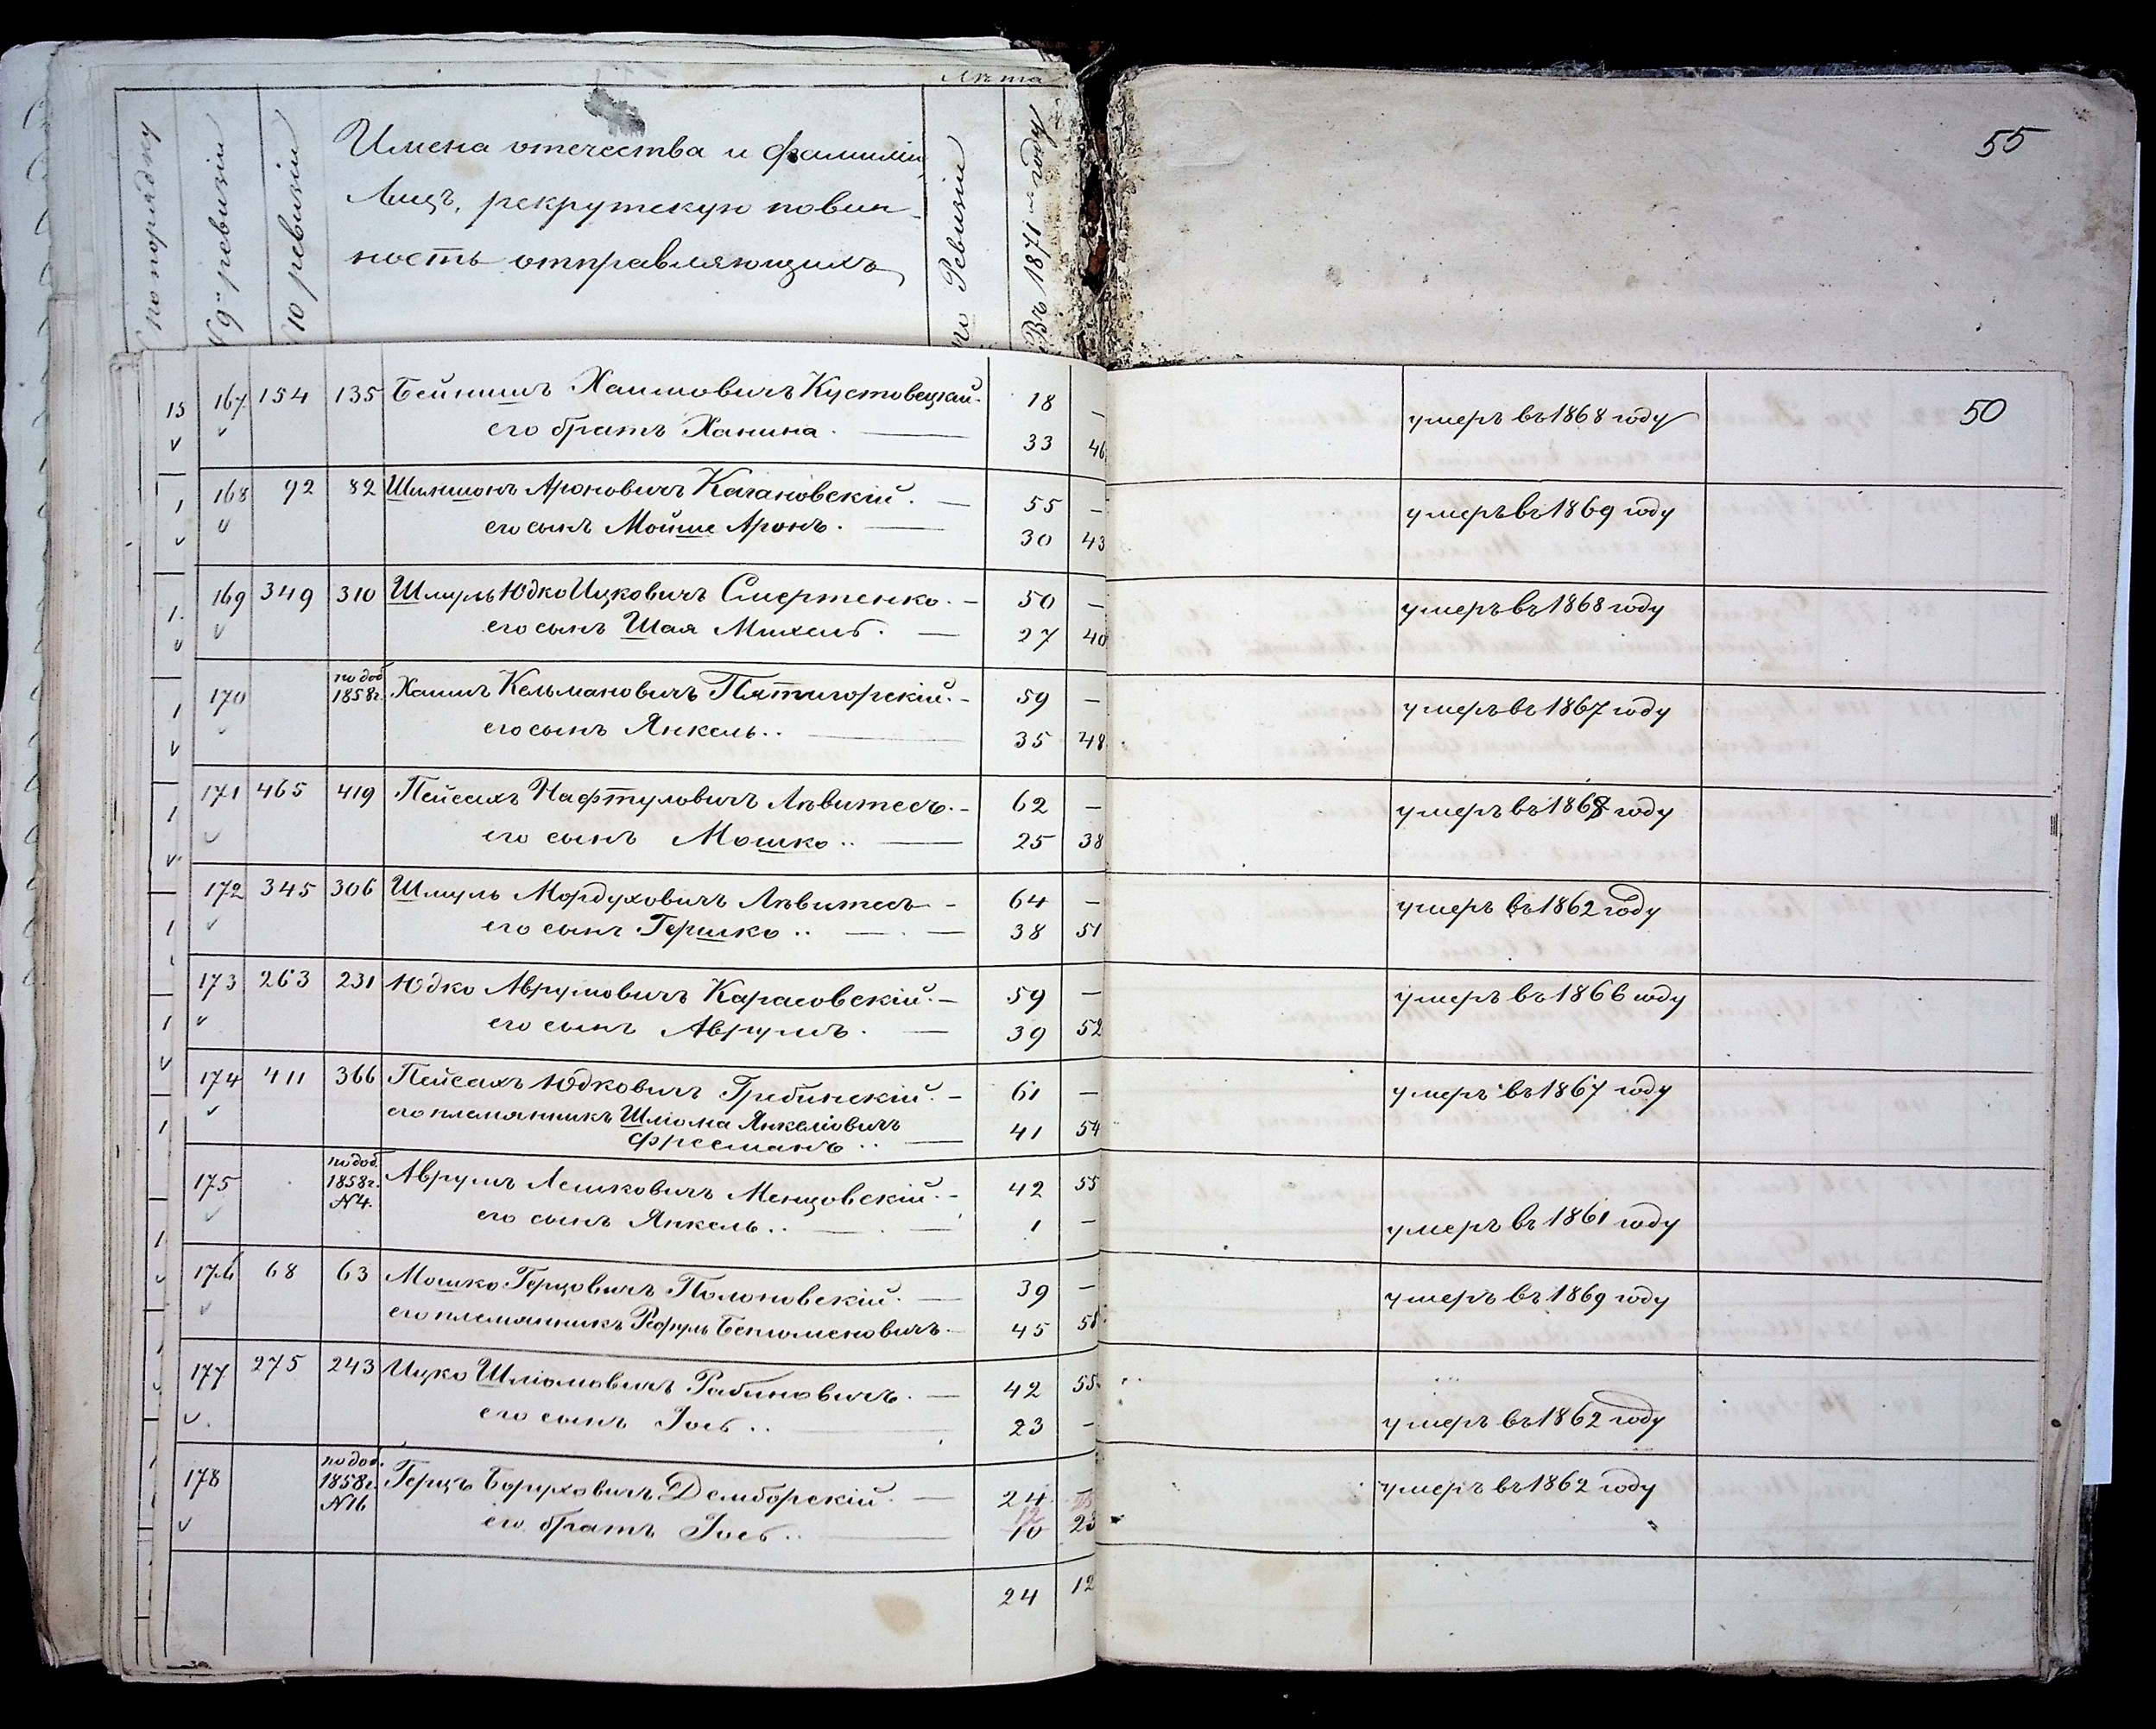 Лѣта
№ по порядку
№ 9й ревизіи
№ 10 ревизіи
Имена отчества и фамиліи
Лицъ, рекрутскую повин-
ность отправляющихъ
по Ревизіи
Въ 1871 м году
55
15 167 154 135 Бейнишъ Хаимовичъ Кустовецкій. 18 — умеръ въ 1868 году 50
его братъ Ханина. — 33 46
168 92 82 Шимшонъ Ароновичъ Кагановскій. — 55 — умеръ въ 1869 году
его сынъ Мойше Аронъ. — 30 43
169 349 310 Шмуль Юдко Ицковичъ Смертенко. — 50 — умеръ въ 1868 году
его сынъ Шая Михель. — 27 40
170 по доб. 1858г. Хаимъ Кельмановичъ Пятигорскій. — 59 — умеръ въ 1867 году
его сынъ Янкель.. — 35 48
171 465 419 Пейсахъ Нафтуловичъ Лѣвитесъ. — 62 — умеръ въ 1868 году
его сынъ Мошко.. — 25 38
172 345 306 Шмуль Мордуховичъ Лѣвитесъ — 64 — умеръ въ 1862 году
его сынъ Гершко.. — 38 51
173 263 231 Юдко Аврумовичъ Карасовскій. — 59 — умеръ въ 1866 году
его сынъ Аврумъ. — 39 52
174 411 366 Пейсахъ Юдковичъ Гребинскій. — 61 — умеръ въ 1867 году
его племянникъ Шліома Янкеліовичъ
Фресманъ.. — 41 54
175 по доб. 1858г. №4. Аврумъ Лешковичъ Менцовскій. — 42 55
его сынъ Янкель.. — 1 — умеръ въ 1861 году
176 68 63 Мошко Герцовичъ Полоновскій. — 39 — умеръ въ 1869 году
его племянникъ Рефуль Беніоменовичъ. 45 58
177 275 243 Ицко Шліомовичъ Рабиновичъ. — 42 55
его сынъ Іось.. — 23 — умеръ въ 1862 году
178 по доб. 1858г. №16 Герцъ Боруховичъ Демборскій. — 24 — умеръ въ 1862 году
12
его братъ Іось.. — 10 23
24 12